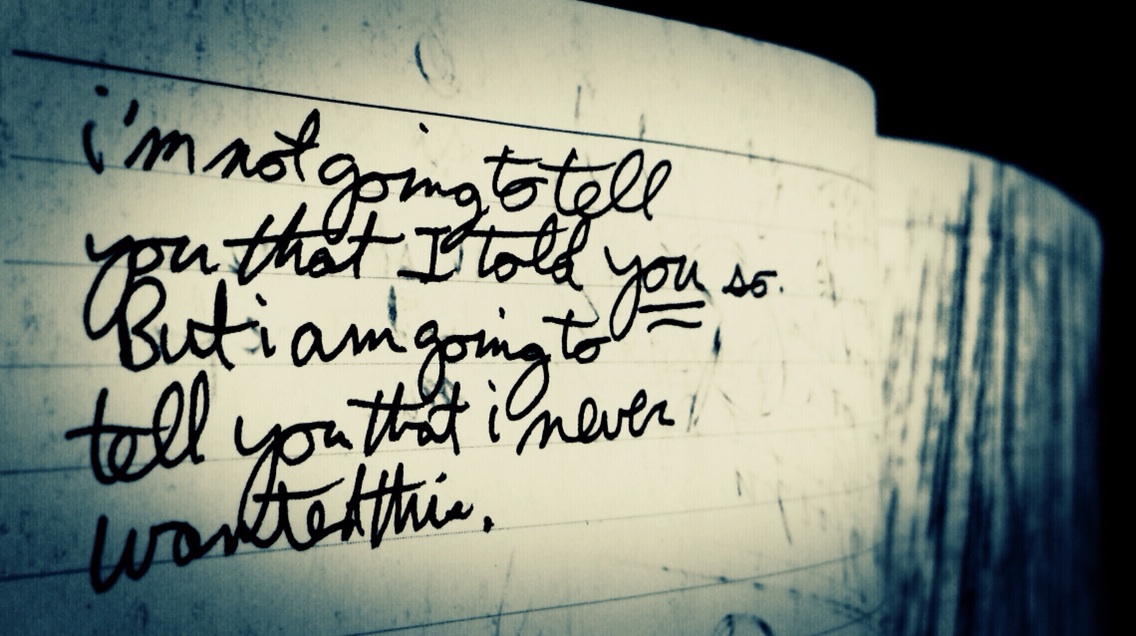 i'm not going to tell
you that I told you so.
But i am going to
tell you that i never
wanted this.